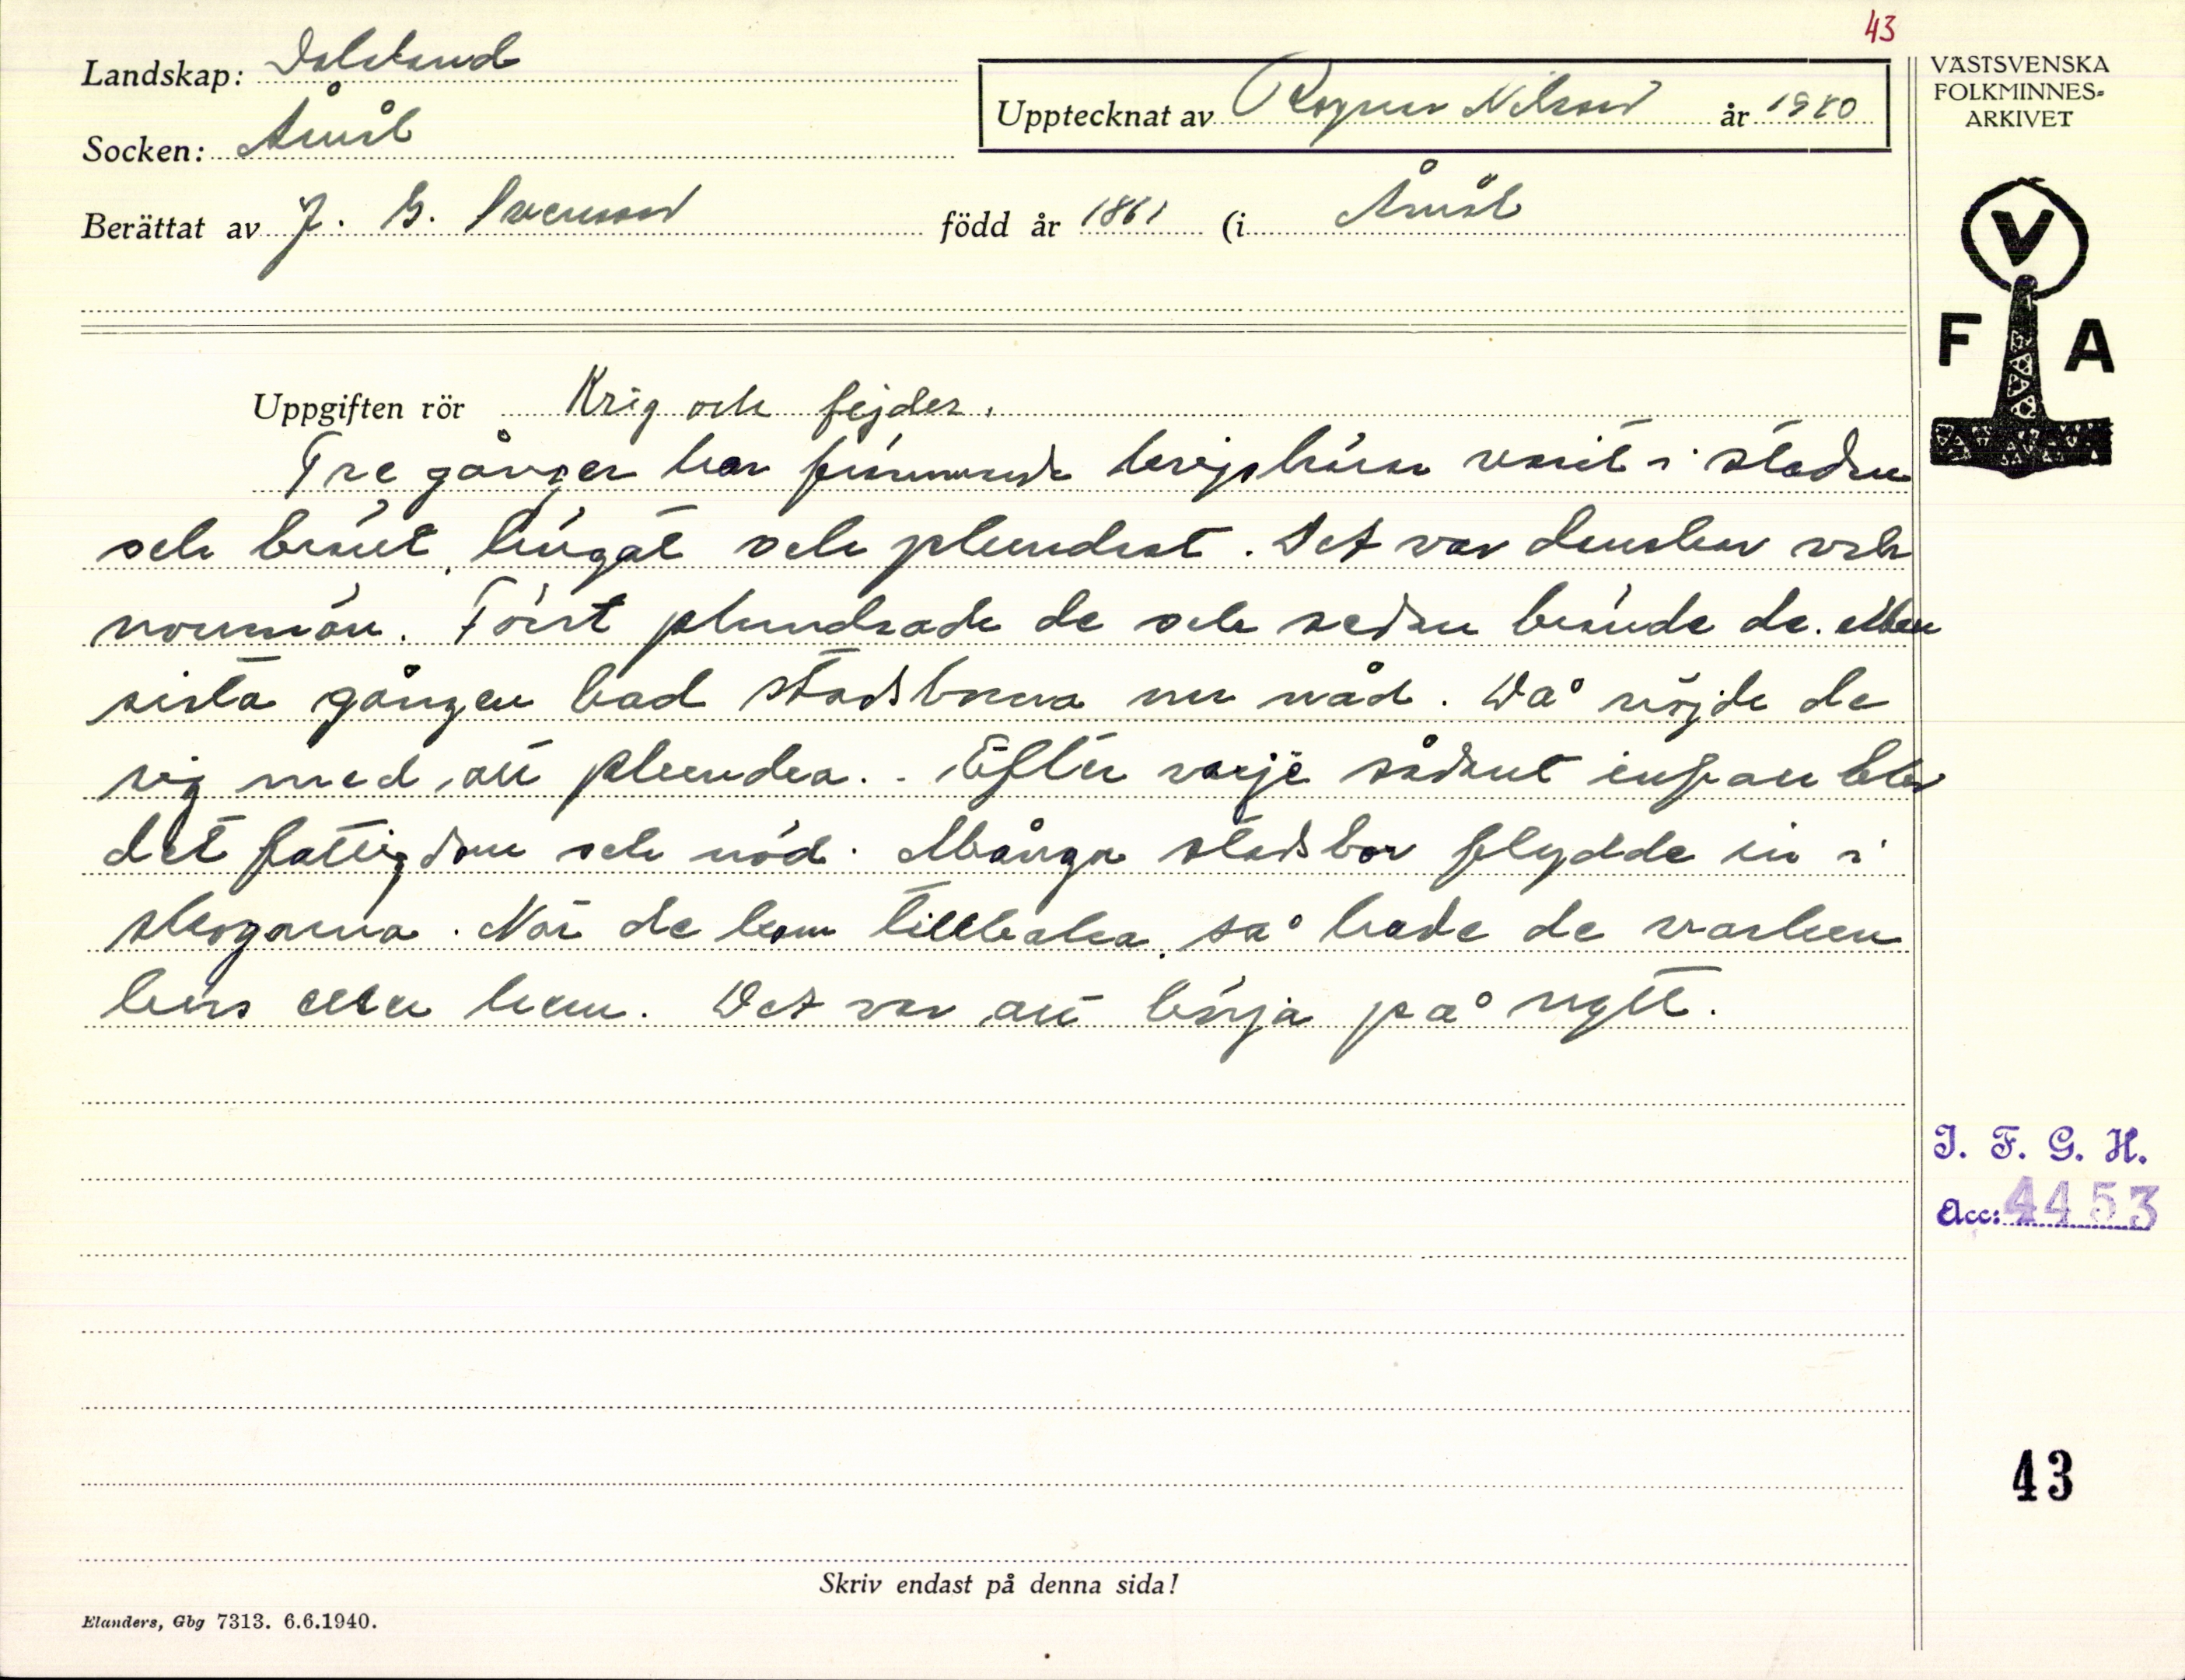 43
Landskap: Dalsland
Socken: Åmål
Upptecknat av Ragnar Nilsson år 1940
Berättat av J. G. Svensson född år 1861 (i Åmål
VÄSTSVENSKA
FOLKMINNES-
ARKIVET
V
F A
Uppgiften rör Krig och fejder.
Tre gånger har främmande krigshärar varit i staden
och bränt, härjat och plundrat. Det var danskar och
norrmän. Först plundrade de och sedan brände de. Men
sista gången bad stadsborna om nåd. Då nöjde de
sig med att plundra. Efter varje sådant infall blev
det fattigdom och nöd. Många stadsbor flydde in i
skogarna. När de kom tillbaka, så hade de varken
hus eller hem. Det var att börja på nytt.
I. F. G. H.
Acc: 4453
43
Skriv endast på denna sida!
Elanders, Gbg 7313. 6.6.1940.